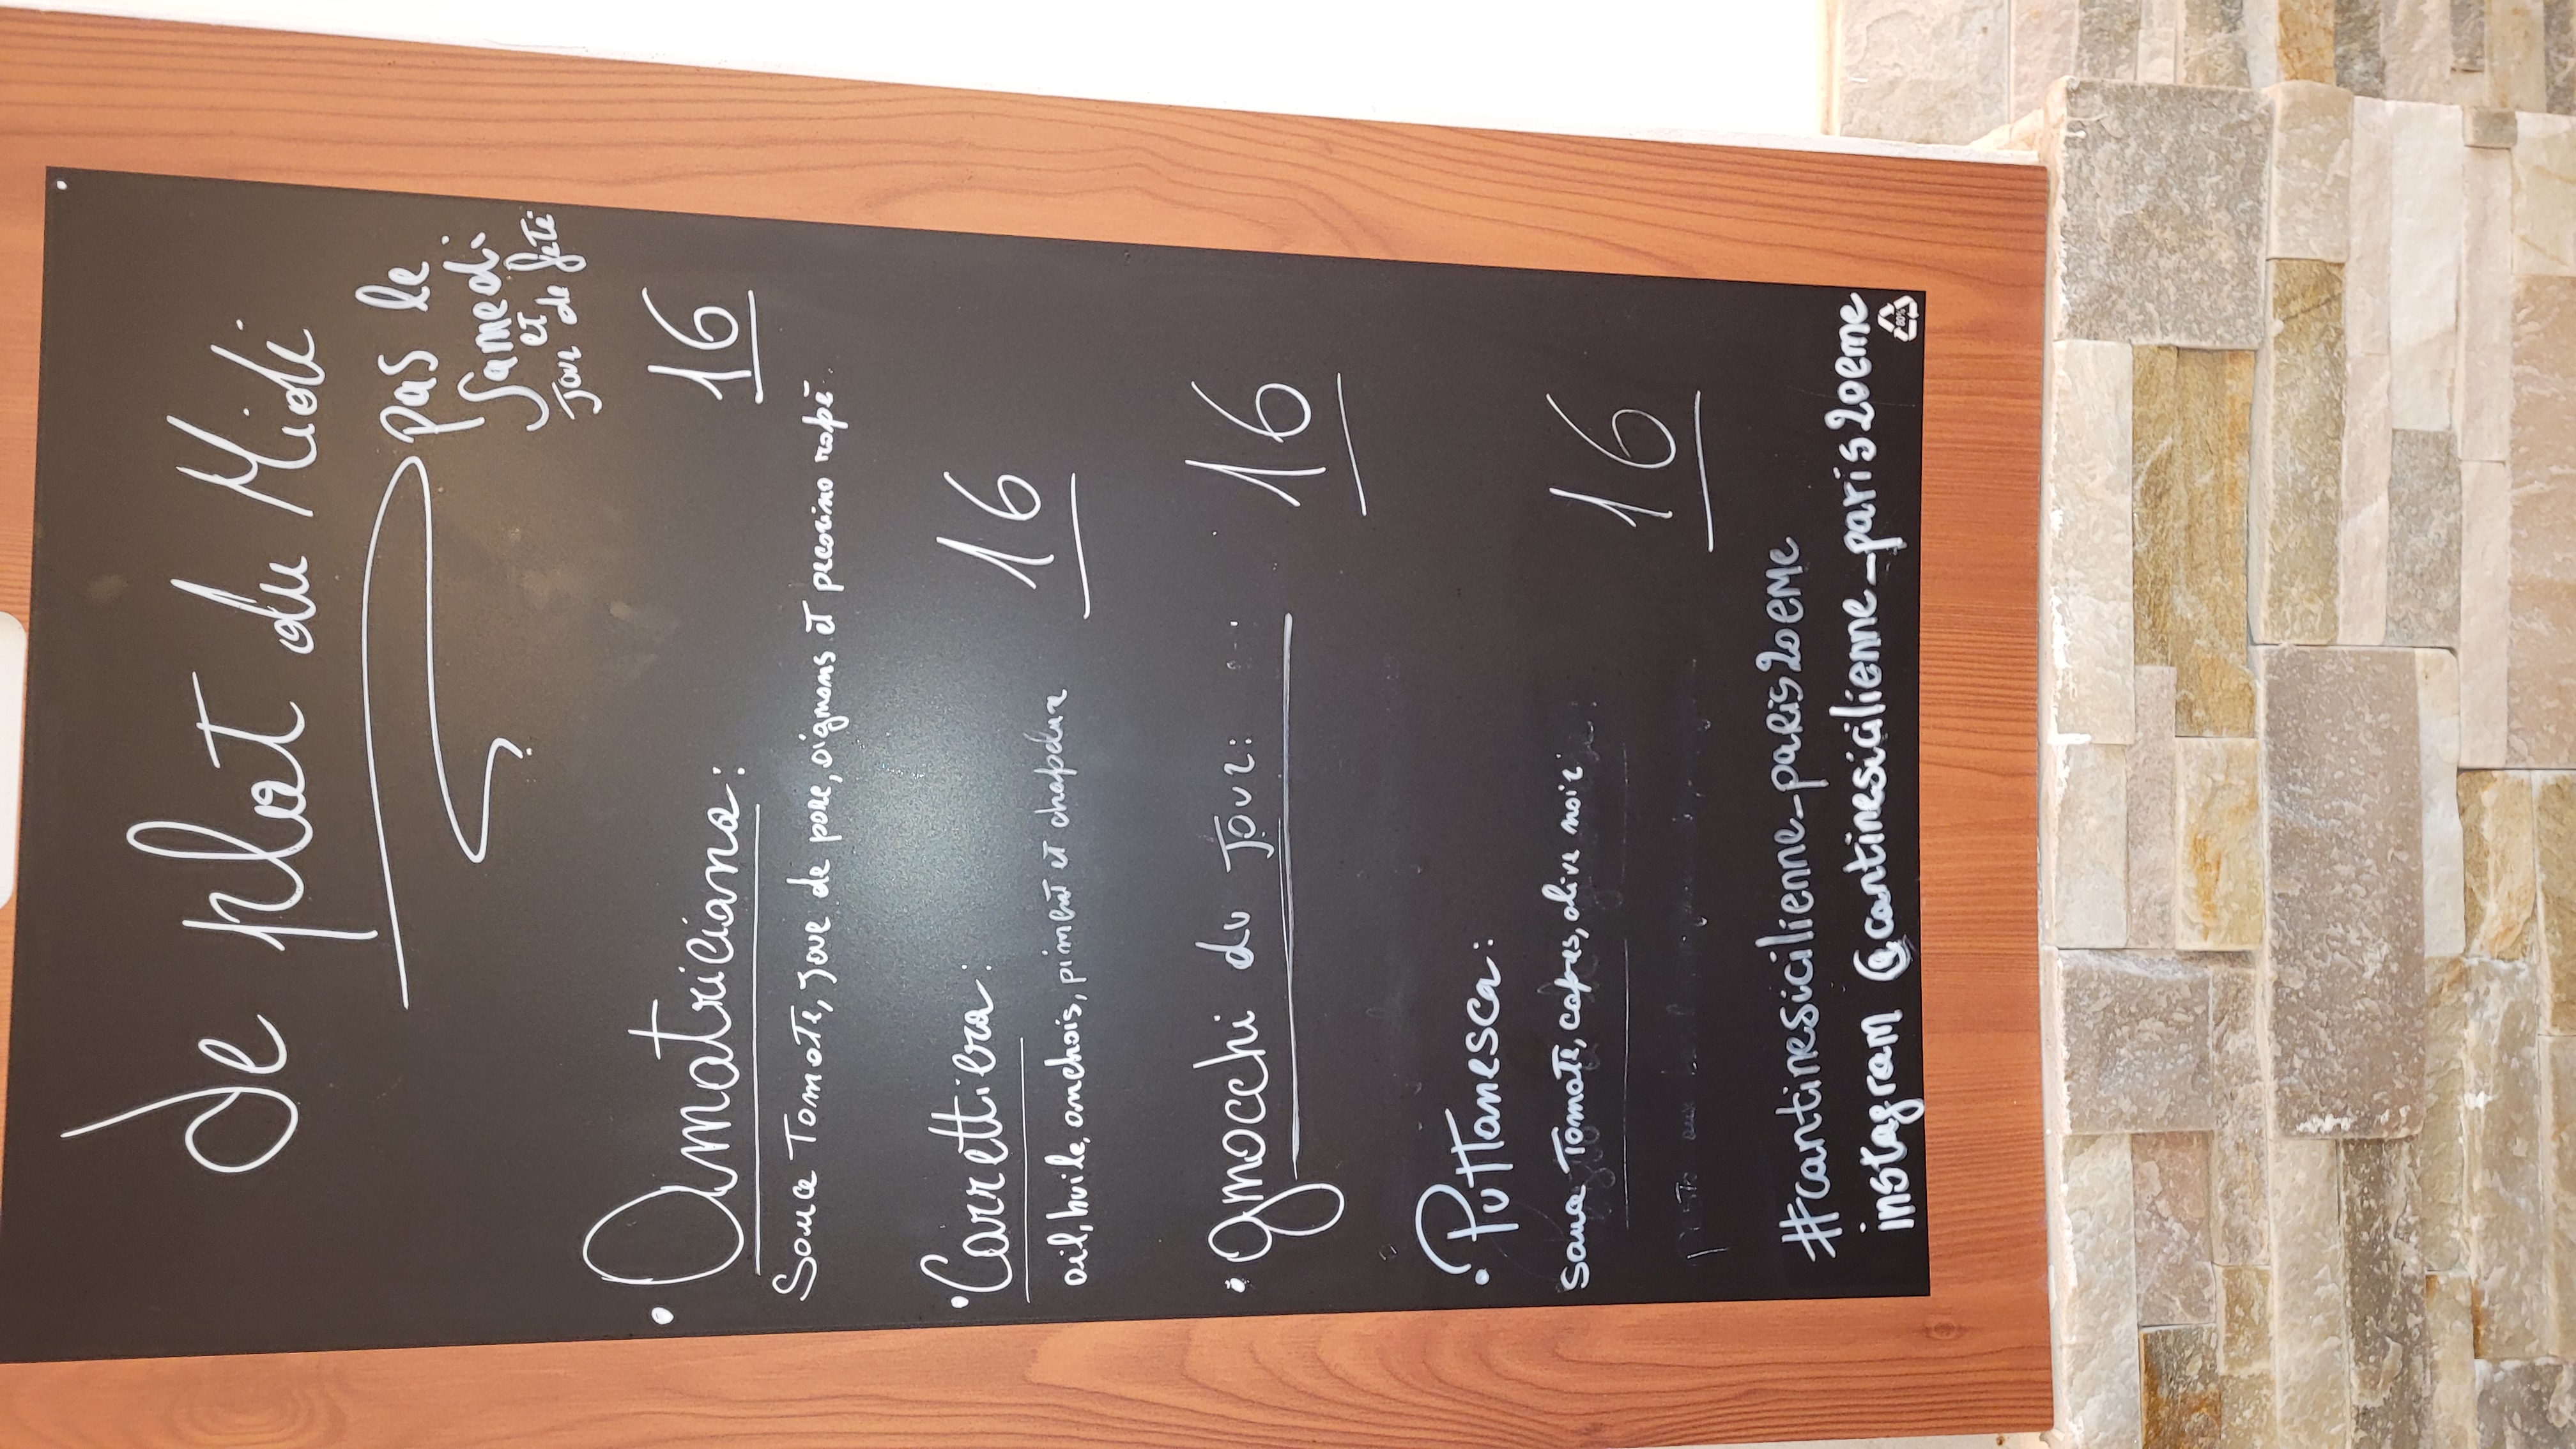 Le plat du Midi
pas le
Samedi
et
Jour de fete
• Amatriciana: 16
Sauce Tomate, Joue de porc, oignons et pecorino rapé
• Carrettiera: 16
ail, huile, anchois, piment et chapelur
• gnocchi du Jour: 16
• Puttanesca: 16
Sauce Tomate, capres, olive noir
#cantinesicilienne_paris20eme
instagram @cantinesicilienne_paris20eme